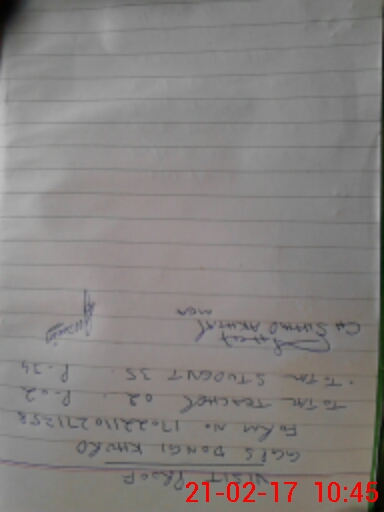 VISIT PROOF
GGPS DONGI KHURD
FORM NO. 17022110271258
TOTAL TEACHER 02. P.02
TOTAL STUDENT 35. P.34
MEA
21-02-17 10:45